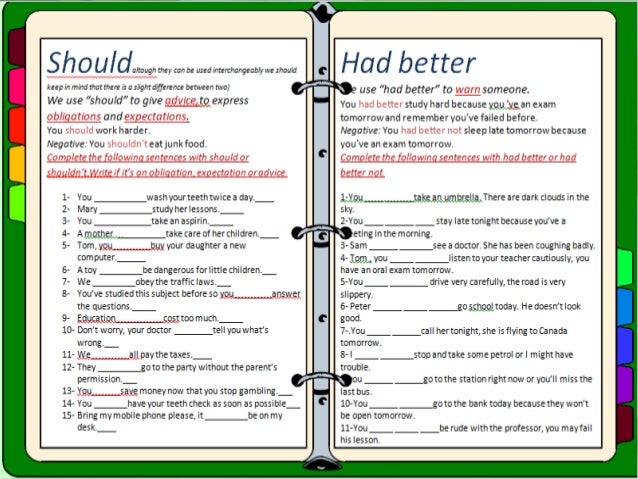 Should altough they can be used interchangeably we should
keep in mind that there is a slight difference between two)
We use "should" to give advice,to express
obligations and expectations.
You should work harder.
Negative: You shouldn't eat junk food.
Complete the following sentences with should or
shouldn't.Write if it's an obligation, expectation or advice.
1- You ____________wash your teeth twice a day.____
2- Mary ____________study her lessons._____
3- You ____________take an aspirin.____
4- A mother____________take care of her children.____
5- Tom, you__________buy your daughter a new
computer.______
6- A toy __________be dangerous for little children.___
7- We __________obey the traffic laws.____
8- You've studied this subject before so you_________answer
the questions.____
9- Education____________cost too much.____
10- Don't worry, your doctor ________tell you what's
wrong.___
11- We_________all pay the taxes.____
12- They _________go to the party without the parent's
permission.___
13- You________save money now that you stop gambling.___
14- You _______have your teeth check as soon as possible___
15- Bring my mobile phone please, it _________be on my
desk.____
Had better
use "had better" to warn someone.
You had better study hard because you 've an exam
tomorrow and remember you've failed before.
Negative: You had better not sleep late tomorrow because
you've an exam tomorrow.
Complete the following sentences with had better or had
better not.
1-You______ ______take an umbrella. There are dark clouds in the
sky.
2-You ______ ________ stay late tonight because you've a
eeting in the morning.
3- Sam ______ ________see a doctor. She has been coughing badly.
4- Tom , you ______ ______listen to your teacher cautiously, you
have an oral exam tomorrow.
5-You______ ______ drive very carefully, the road is very
slippery.
6- Peter ________ ________go school today. He doesn't look
good.
7-.You______ ______call her tonight, she is flying to Canada
tomorrow.
8-I ______ ______stop and take some petrol or I might have
trouble.
ou ______ ______go to the station right now or you'll miss the
last bus.
10-You ______ ______go to the bank today because they won't
be open tomorrow.
11-You______ ________be rude with the professor, you may fail
his lesson.